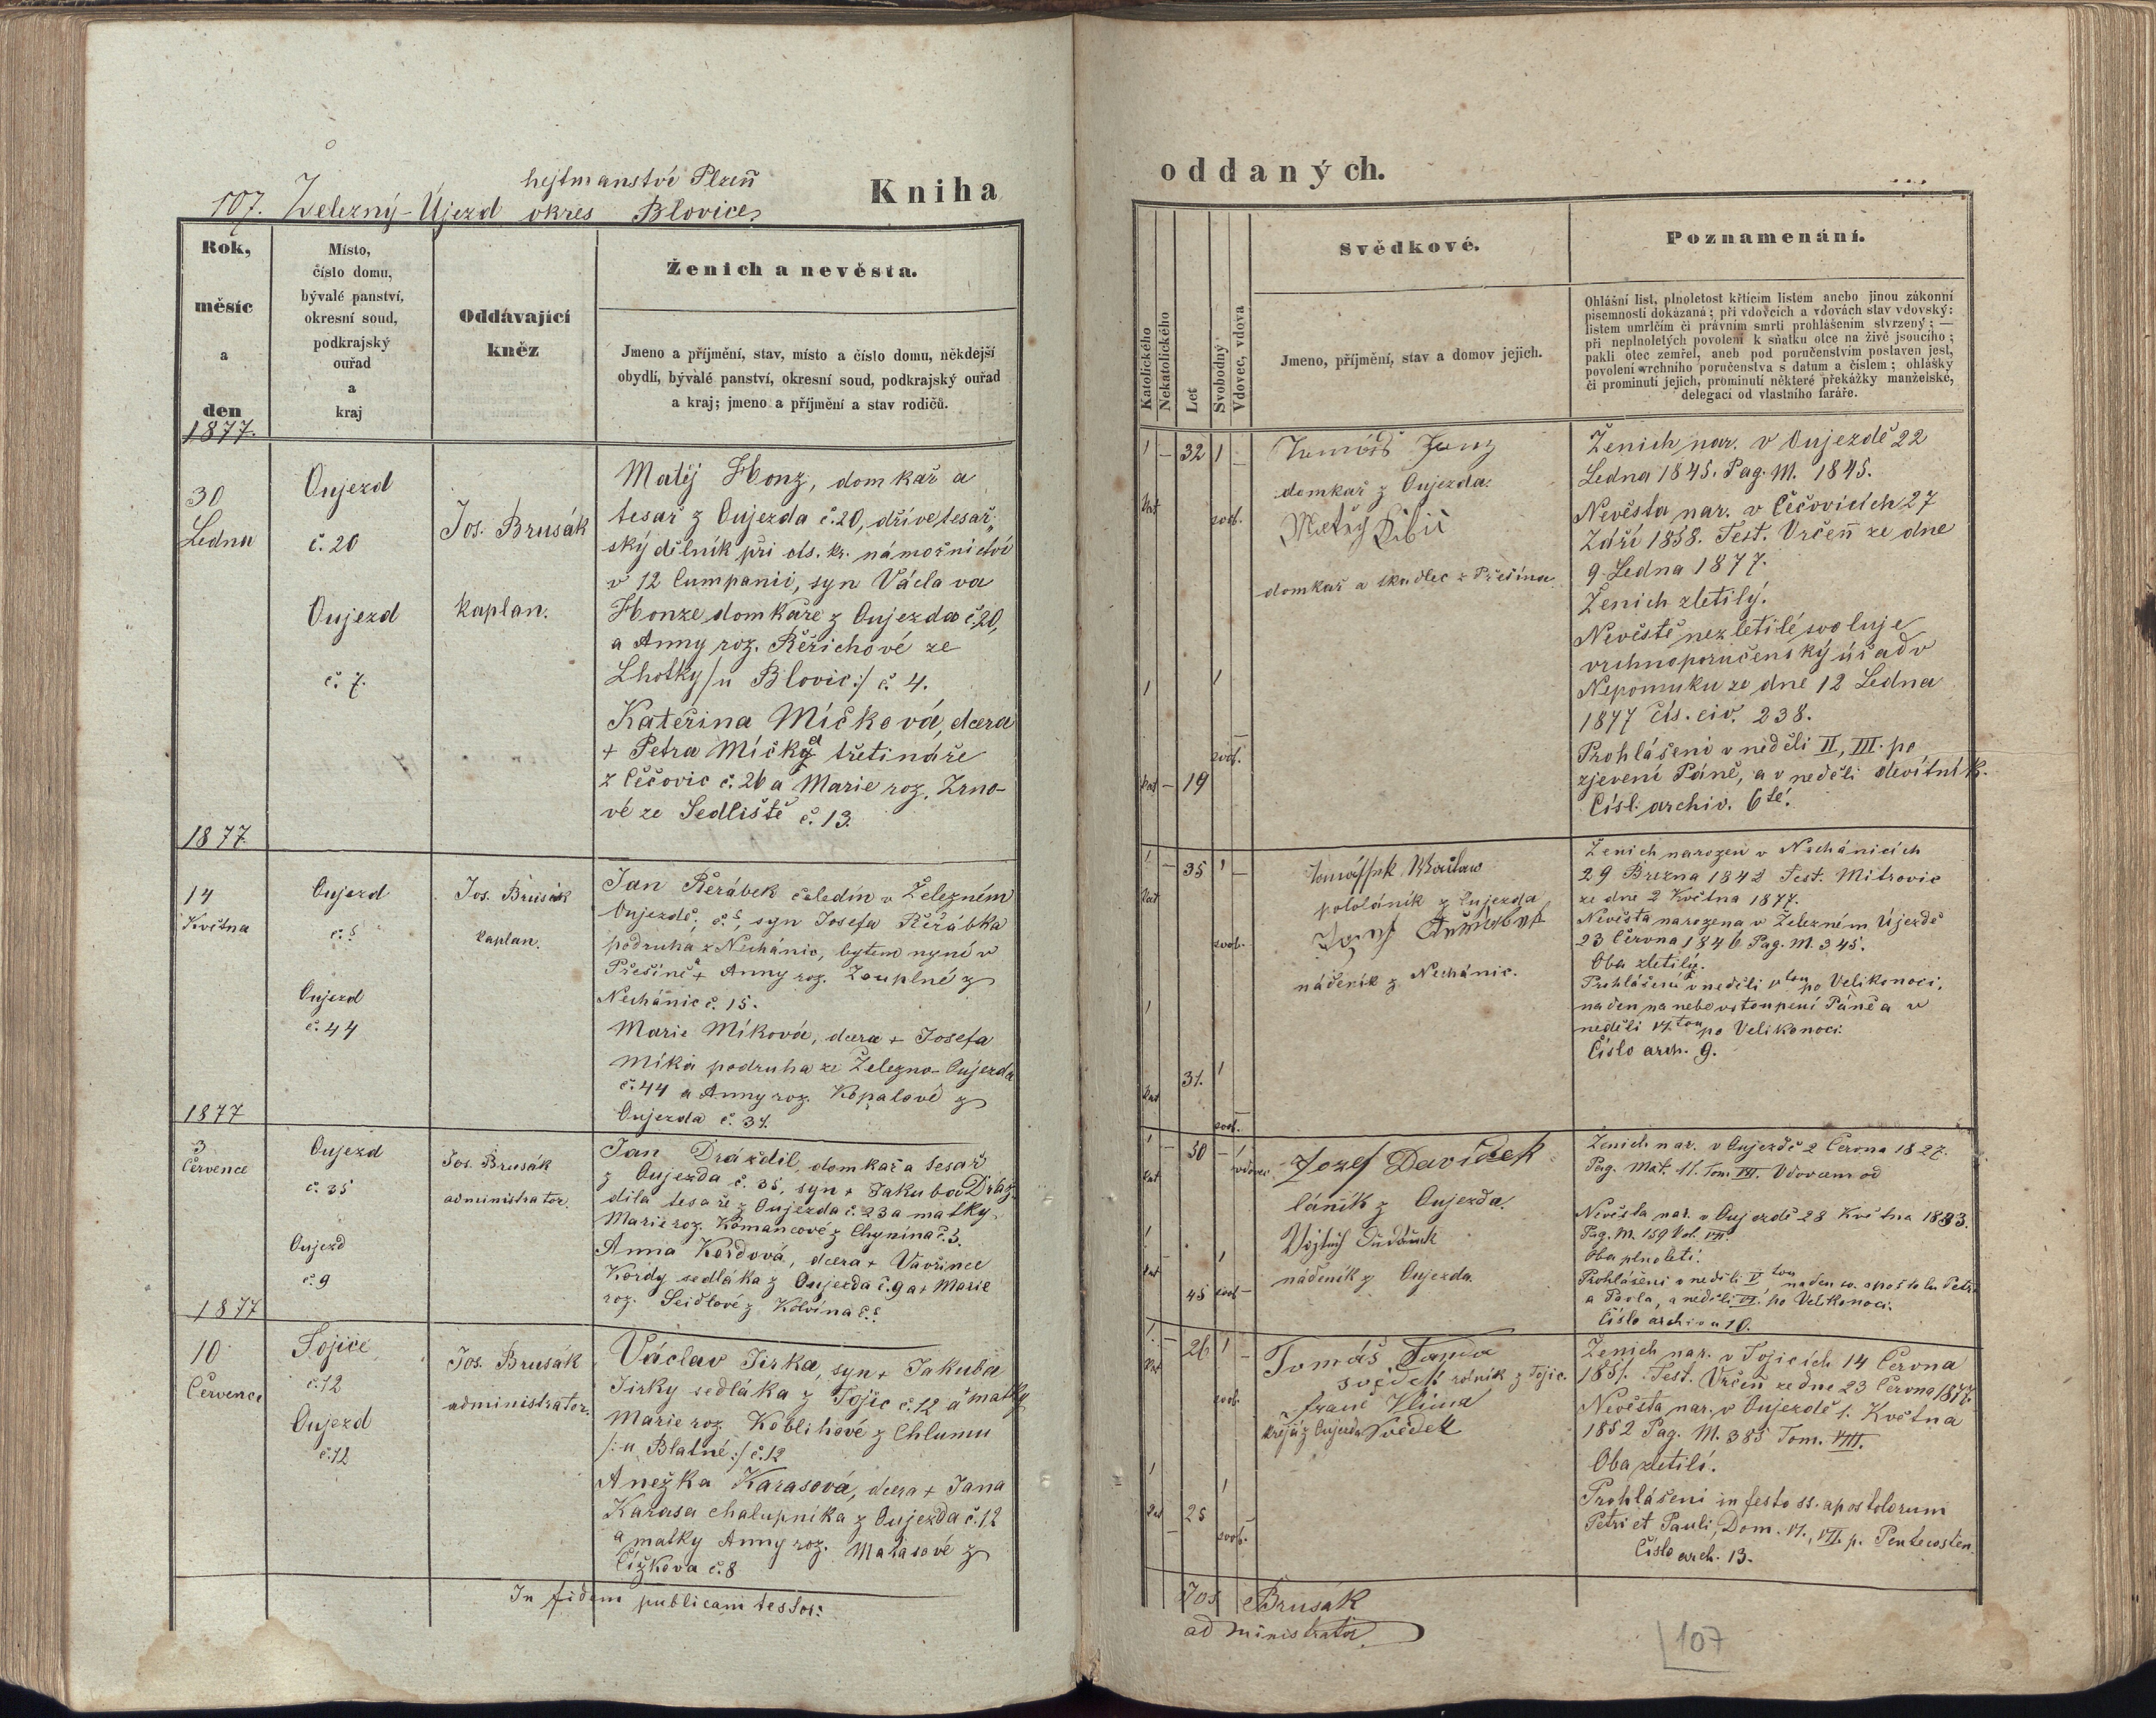 hejtmanství Plzeň
107. Železný-Újezd okres Blovice
Kniha
Rok,
měsíc
a
den
1877.
Místo,
číslo domu,
bývalé panství,
okresní soud,
podkrajský
ouřad
a
kraj
Oddávající
kněz
Ženich a nevěsta.
Jmeno a příjmění, stav, místo a číslo domu, někdejší
obydlí, bývalé panství, okresní soud, podkrajský ouřad
a kraj; jmeno a příjmění a stav rodičů.
30
Ledna
Oujezd
č. 20
Oujezd
č. 7.
Jos. Brusák
kaplan.
Matěj Honz, domkař a
tesař z Oujezda č. 20, dříve tesař-
ský dělník při cís. kr. námořnictví
v 12 Cumpanii, syn Václava
Honze domkaře z Oujezda č. 20,
a Anny roz. Řeřichové ze
Lhotky /u Blovic:/ č. 4.
Kateřina Míčková, dcera
+ Petra Míčky třetináře
z Čečovic č. 26 a Marie roz. Zrno-
vé ze Sedliště č. 13.
1877
14
Května
Oujezd
č. 5
Oujezd
č. 44
Jos. Brusák
kaplan.
Jan Řeřábek čeledín v Železném
Oujezdě, č. 5, syn Josefa Řeřábka
podruha z Nechánic, bytem nyní v
Přešíně a + Anny roz. Zouplné z
Nechánic č. 15.
Marie Míková, dcera + Josefa
Míka podruha ze Železno-Oujezda
č. 44 a Anny roz. Kopalové z
Oujezda č. 31.
1877
3
Července
Oujezd
č. 35
Oujezd
č. 9
Jos. Brusák
administrator.
Jan Draždil, domkař a tesař
z Oujezda č. 35, syn + Jakuba Draž-
dila tesaře z Oujezda č. 23 a matky
Marie roz. Komancové z Chynína č. 5.
Anna Kordová, dcera + Vavřince
Kordy sedláka z Oujezda č. 9 a + Marie
roz. Seidlové z Kolvína č. 5.
1877
10
Července
Tojice
č. 12
Oujezd
č. 12
Jos. Brusák
administrator.
Václav Jirka, syn + Jakuba
Jirky sedláka z Tojic č. 12 a matky
Marie roz. Koblihové z Chlumu
/:u Blatné:/ č. 12
Anežka Karasová, dcera + Jana
Karasa chalupníka z Oujezda č. 12
a matky Anny roz. Matasové z
Čížkova č. 8
In fidem publicam testor:
oddaných.
Katolického
Nekatolického
Let
Svobodný
Vdovec, vdova
Svědkové.
Jmeno, příjmění, stav a domov jejich.
Poznamenání.
Ohlášní list, plnoletost křticím listem anebo jinou zákonní
písemností dokázaná; při vdovcích a vdovách stav vdovský:
listem umrlčím či právním smrti prohlášením stvrzený; —
při neplnoletých povolení k sňatku otce na živě jsoucího;
pakli otec zemřel, aneb pod poručenstvím postaven jest,
povolení vrchního poručenstva s datum a číslem; ohlášky
či prominutí jejich, prominutí některé překážky manželské,
delegací od vlastního faráře.
1 – 32 1 –
kat svob.
Honz
domkař z Oujezda.
Matěj
domkař a tkadlec z Přešína
1 1 –
svob.
kat – 19
Ženich nar. v Oujezdě 22
Ledna 1845. Pag. M. 1845.
Nevěsta nar. v Čečovicích 27
Září 1858. Test. Vrčeň ze dne
9. Ledna 1877.
Ženich zletilý.
Nevěstě nezletilé svoluje
vrchnoporučenský úřad v
Nepomuku ze dne 12 Ledna
1877 čís. civ. 238.
Prohlášení v neděli II, III. po
zjevení Páně, a v neděli devítník.
Čísl. archiv. 6té.
1 – 35 1 –
kat svob.
pololáník z Oujezda
nádeník z Nechánic.
1
31. 1 –
kat svob.
Ženich narozen v Nechánicích
29 Března 1842 Test. Mitrovic
ze dne 2 Května 1877.
Nevěsta narozena v Železném Újezdě
23 Června 1846 Pag. M. 345.
Oba zletilý.
Prohlášení v neděli Vtou po Velikonoci,
na den na nebe vstoupení Páně a v
neděli VI.tou po Velikonoci.
Číslo arch. 9.
1 – 50 – 1
kat vdovec
Jozef Davídek
láník z Oujezda.
Vojtěch
nádeník z Oujezda.
1 – 1
kat 45 svob –
Ženich nar. v Oujezdě 2 Června 1827.
Pag. Mat. 11. Tom. VII. Vdovcem od
Nevěsta nar. v Oujezdě 28 Května 1833.
Pag. M. 159 Vol. VII.
Oba plnoletí.
Prohlášení v neděli V tou na den sv. apoštolu Petra
a Pavla, a neděli VI. po Velikonoci.
Číslo archivu 10.
1. – 26 1 –
kat svob
Tomáš
svědek rolník z Tojic.
Franc Klima
krejčí z Oujezda Svědek
1 1
kat – 25 svob. –
Ženich nar. v Tojicích 14 Června
1851. Test. Vrčeň ze dne 23 Června 1877.
Nevěsta nar. v Oujezdě 1. Května
1852 Pag. M. 385 Tom. VIII.
Oba zletilí.
Prohlášení in festo ss. apostolorum
Petri et Pauli, Dom. VI., VII. p. Pentecosten.
Číslo arch. 13.
Jos Brusák
administrator
107